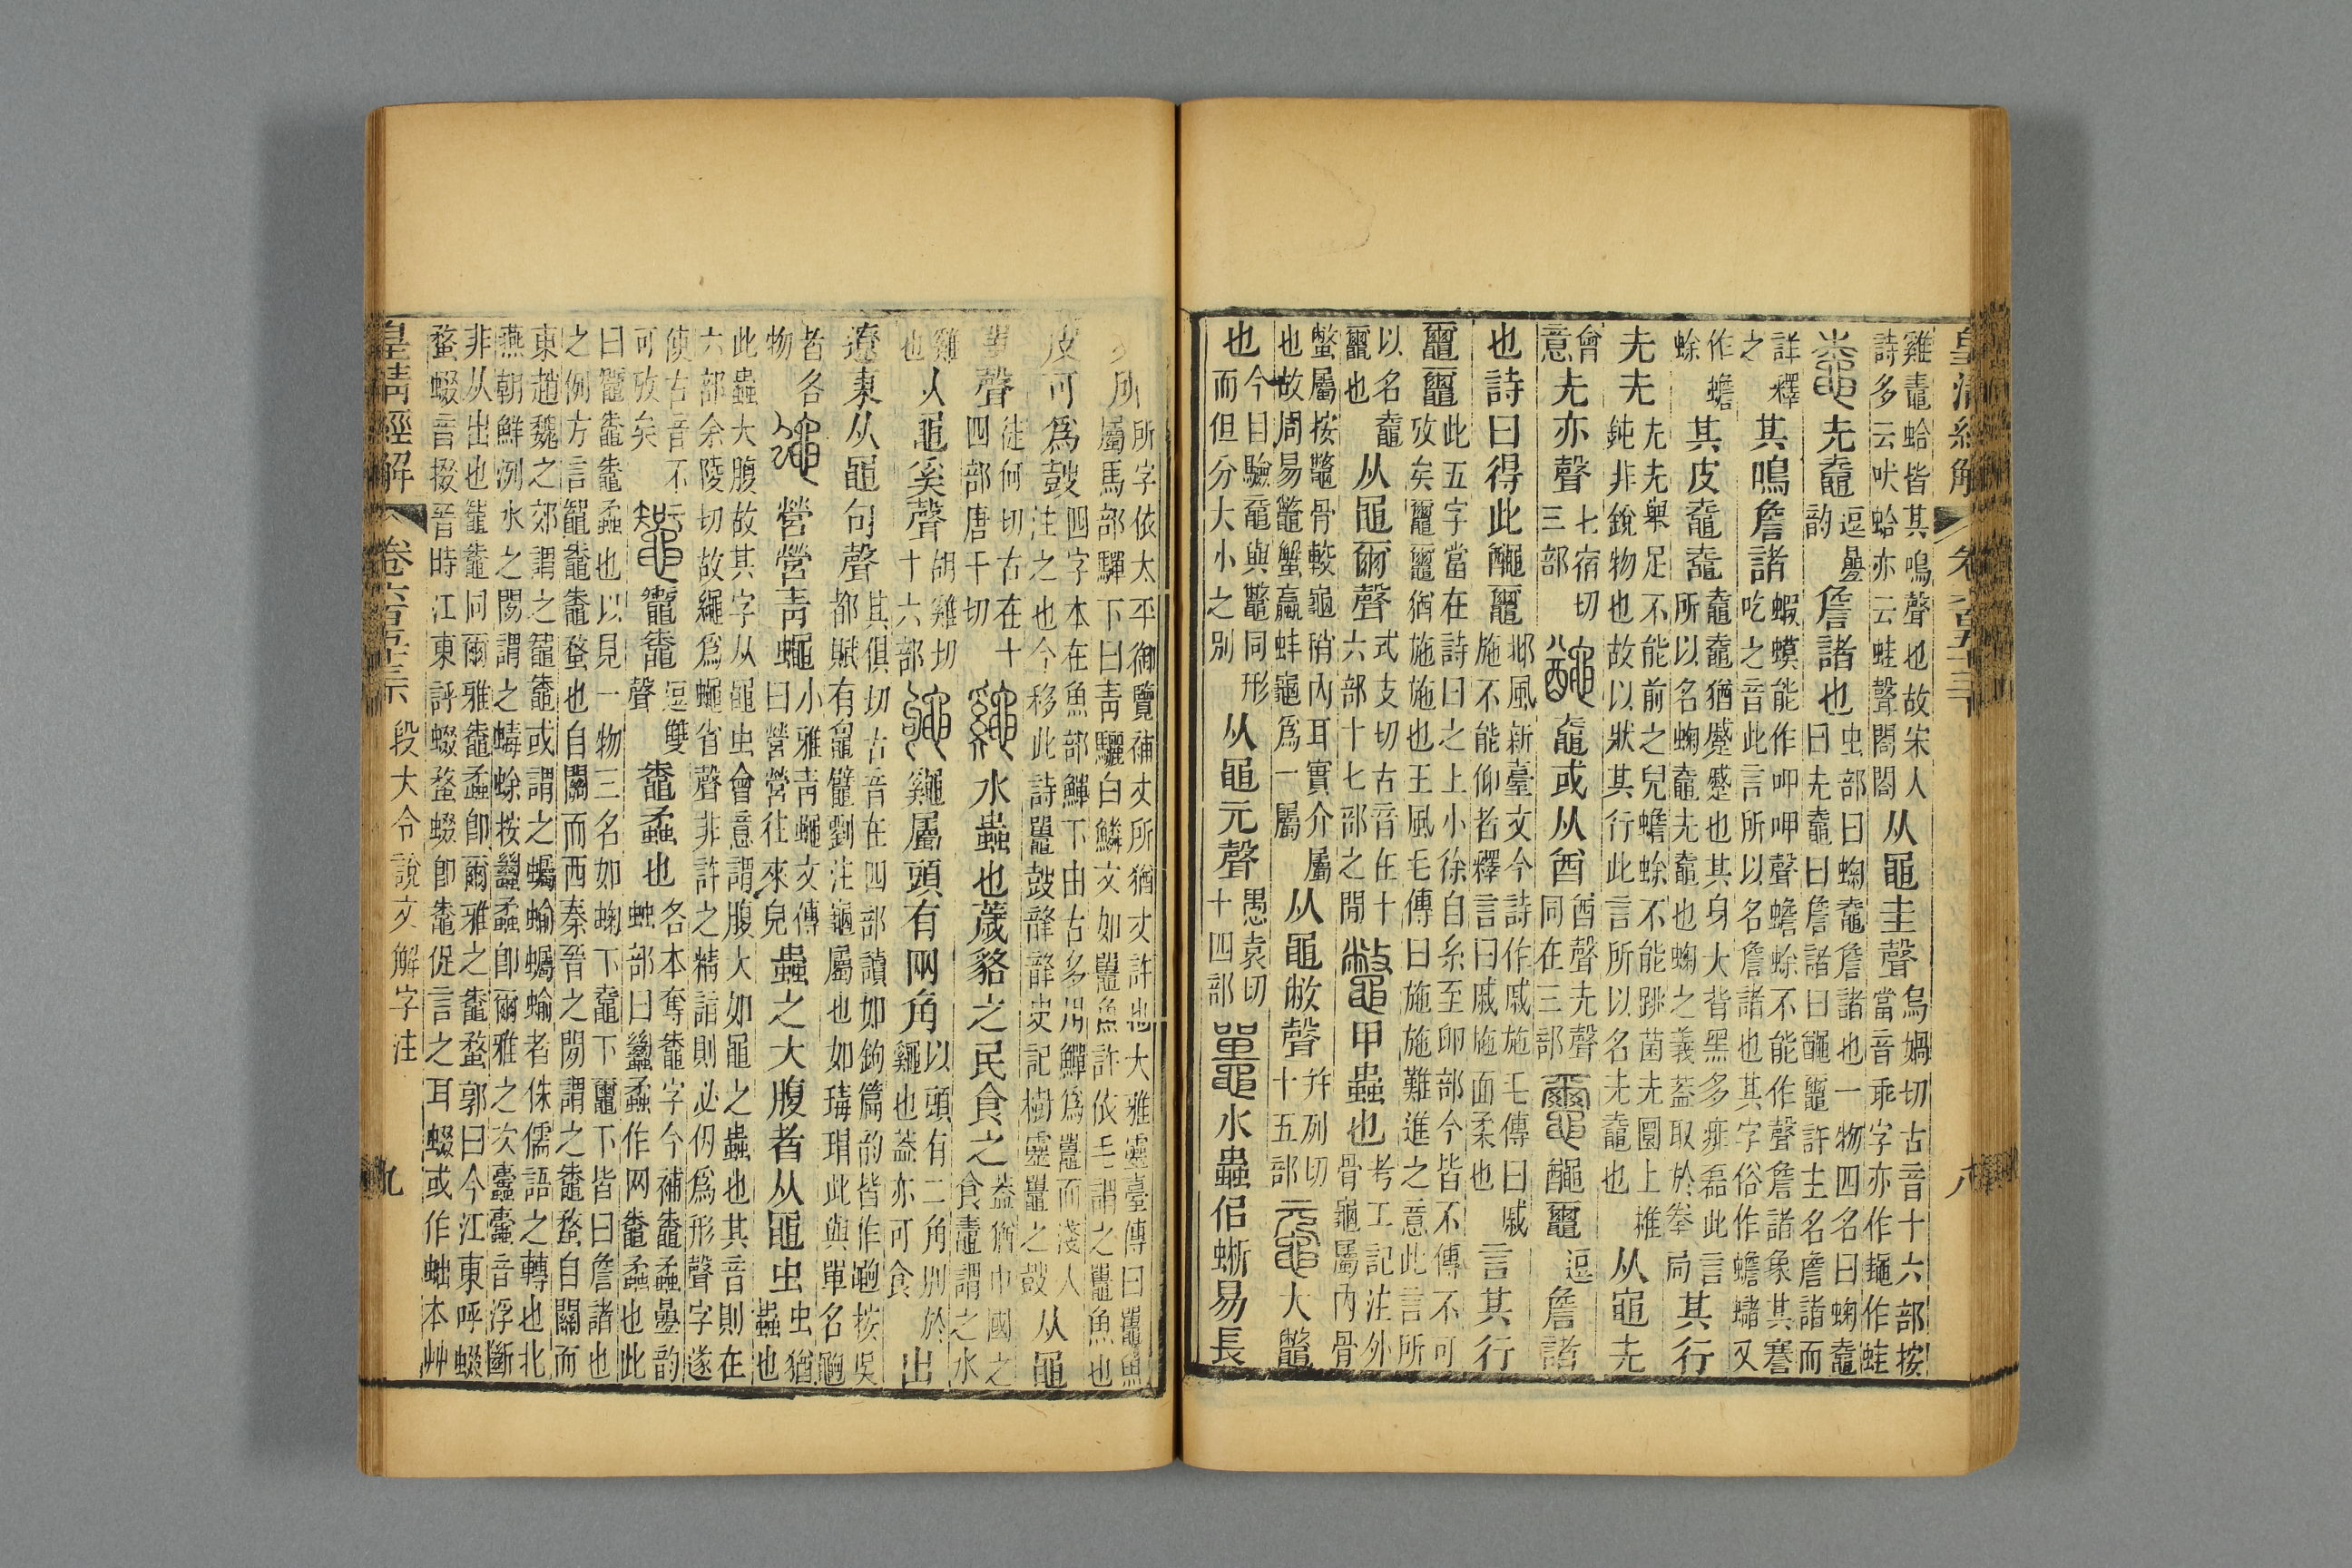 皇清經解 卷六百五十三 八
雞鼃蛤皆其鳴聲也故宋人詩多云吠蛤亦云蛙聲閤閤从黽圭聲烏媧切古音十六部按當音乖字亦作䵷作蛙
圥鼀逗疊韵詹諸也虫部曰䗇鼀詹諸也一物四名曰䗇鼀曰圥鼀曰詹諸曰𪓿𪓬許主名詹諸而
詳釋之其鳴詹諸蝦蟆能作呷呷聲蟾蜍不能作聲詹諸象其謇吃之音此言所以名詹諸也其字俗作蟾蠩又
作蟾蜍其皮鼀鼀鼀鼀猶蹙蹙也其身大背黑多痱磊此言所以名䗇鼀圥鼀也䗇之義蓋取於𢍏局其行
圥圥圥圥舉足不能前之皃蟾蜍不能跳菌圥圜上椎鈍非銳物也故以狀其行此言所以名圥鼀也从黽圥
會意圥亦聲七宿切三部𪓿鼀或从酋酋聲圥聲同在三部𪓬𪓿𪓬逗詹諸
也詩曰得此𪓿𪓬邶風新臺文今詩作戚施毛傳曰戚施不能仰者釋言曰戚施面柔也言其行
𪓬𪓬此五字當在詩曰之上小徐自糸至卵部今皆不傳不可攷矣𪓬𪓬猶施施也王風毛傳曰施施難進之意此言所
以名鼀𪓬也从黽爾聲式支切古音在十六部十七部之閒鼈甲蟲也考工記注外骨龜屬內骨
鼈屬按鼈骨較龜稍內耳實介屬也故周易鼈蟹蠃蚌龜爲一屬从黽敝聲并列切十五部黿大鼈
也今目驗黿與鼈同形而但分大小之別从黽元聲愚袁切十四部鼉水蟲佀蜥易長
丈所所字依太平御覽補丈所猶丈許也大雅靈臺傳曰鼉魚屬馬部驒下曰青驪白鱗文如鼉魚許依毛謂之鼉魚也
皮可爲鼓四字本在魚部鱓下由古多用鱓爲鼉而淺人注之也今移此詩鼉鼓𨐒𨐒史記樹靈鼉之鼓从黽
單聲徒何切古在十四部唐干切𪓷水蟲也薉貉之民食之蓋猶中國之食鼃謂之水
雞也从黽奚聲胡雞切十六部𪓷屬頭有兩角以頭有二角別於𪓷也蓋亦可食出
遼東从黽句聲其俱切古音在四部讀如鉤篇韵皆作䵶按吳都賦有鼊劉注龜屬也如瑇瑁此與單名䵶
者各物蠅營營青蠅小雅青蠅文傳曰營營往來皃蟲之大腹者从黽虫虫猶蟲也
此蟲大腹故其字从黽虫會意謂腹大如黽之蟲也其音則在六部余陵切故繩爲蠅省聲非許之精詣則必仍爲形聲字遂
使古音不可攷矣鼅鼄逗雙聲鼄蝥也各本奪鼄字今補鼄蝥疊韵䖵部曰蠿蝥作网鼄蝥也此
曰鼅鼄鼄蝥也以見一物三名如䗇下鼀下𪓬下皆曰詹諸也之例方言鼅鼄鼄蝥也自關而西秦晉之閒謂之鼄蝥自關而
東趙魏之郊謂之鼅鼄或謂之蠾蝓蠾蝓者侏儒語之轉也北燕朝鮮洌水之閒謂之蝳蜍按蠿蝥卽爾雅之次蟗蟗音浮斷
非从出也鼅鼄同爾雅鼄蝥卽爾雅之鼄蝥郭曰今江東呼蝃蝥蝃音掇晉時江東評蝃蝥蝃卽鼄促言之耳蝃或作蚍本艸
皇清經解 卷六百五十三 段大令說文解字注 九